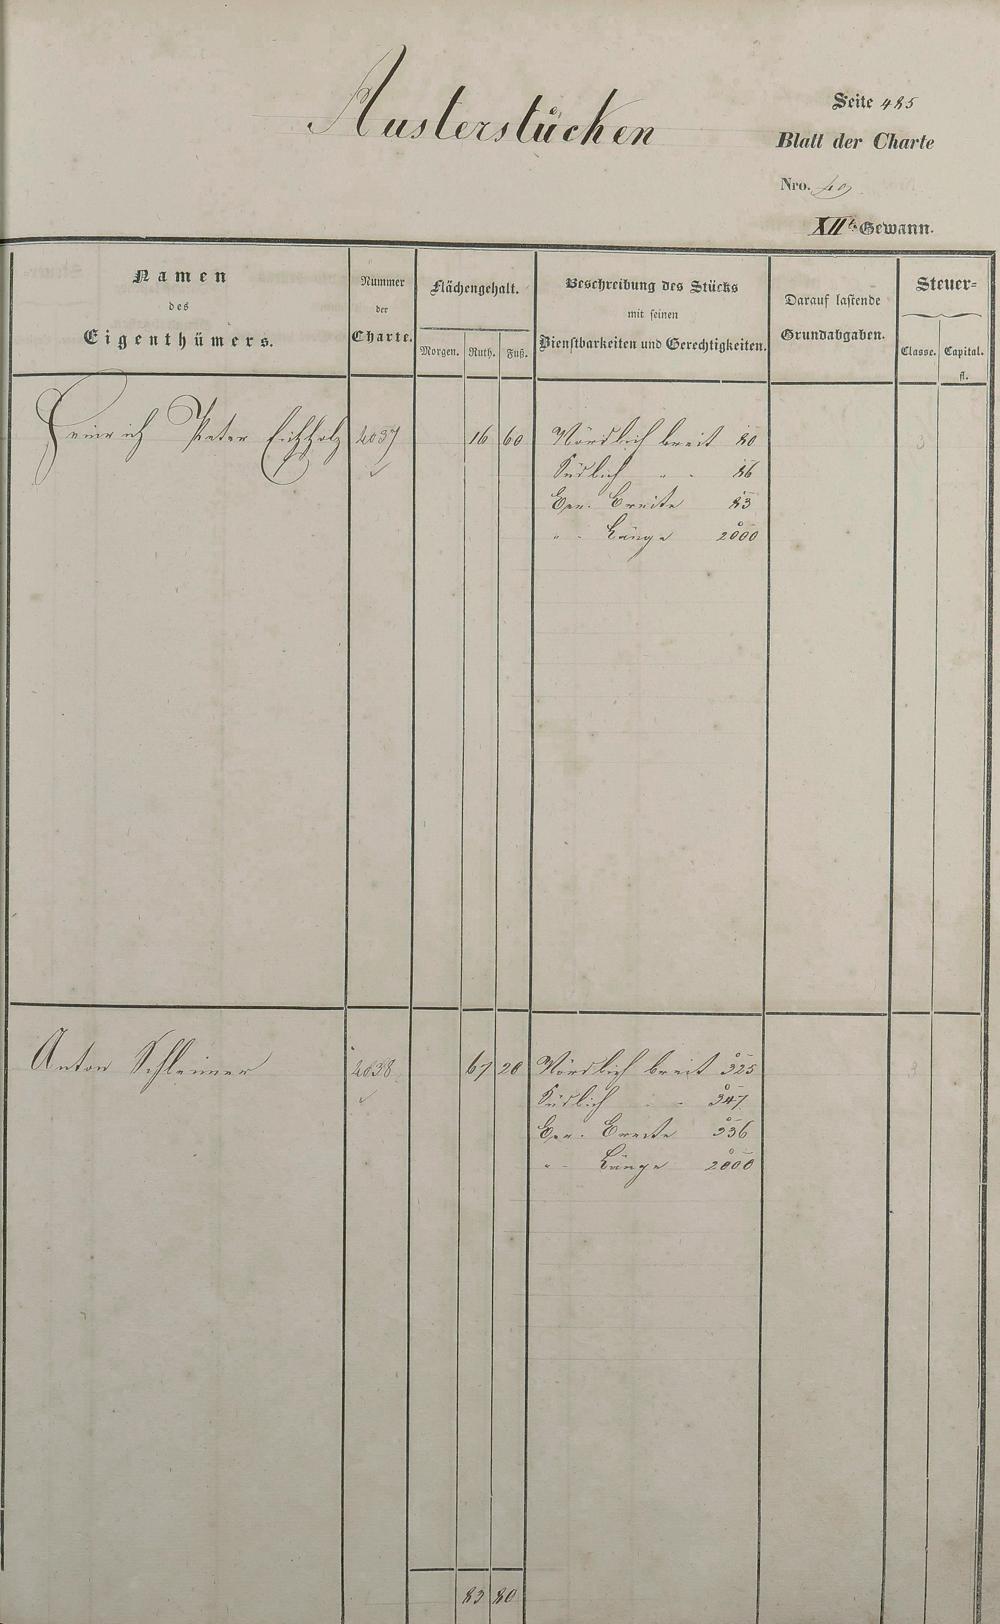 Austerstücken
Seite 485
Blatt der Charte
Nro. 40
XIIt. Gewann.
Namen
des
Eigenthümers.
Nummer
der
Charte.
Flächengehalt.
Morgen. Ruth. Fuß.
Beschreibung des Stücks
mit seinen
Dienstbarkeiten und Gerechtigkeiten.
Darauf lastende
Grundabgaben.
Steuer=
Classe. Capital.
fl.
Heinrich Peter Eichholz 4037 16 60 Nördlich breit 80 3
Südlich " " 86
Gen. Breite 83
" " Länge 2000
Anton Schleimer 4038 67 20 Nördlich breit 325 3
Südlich " " 347
Gen. Breite 336
" " Länge 2000
83 80